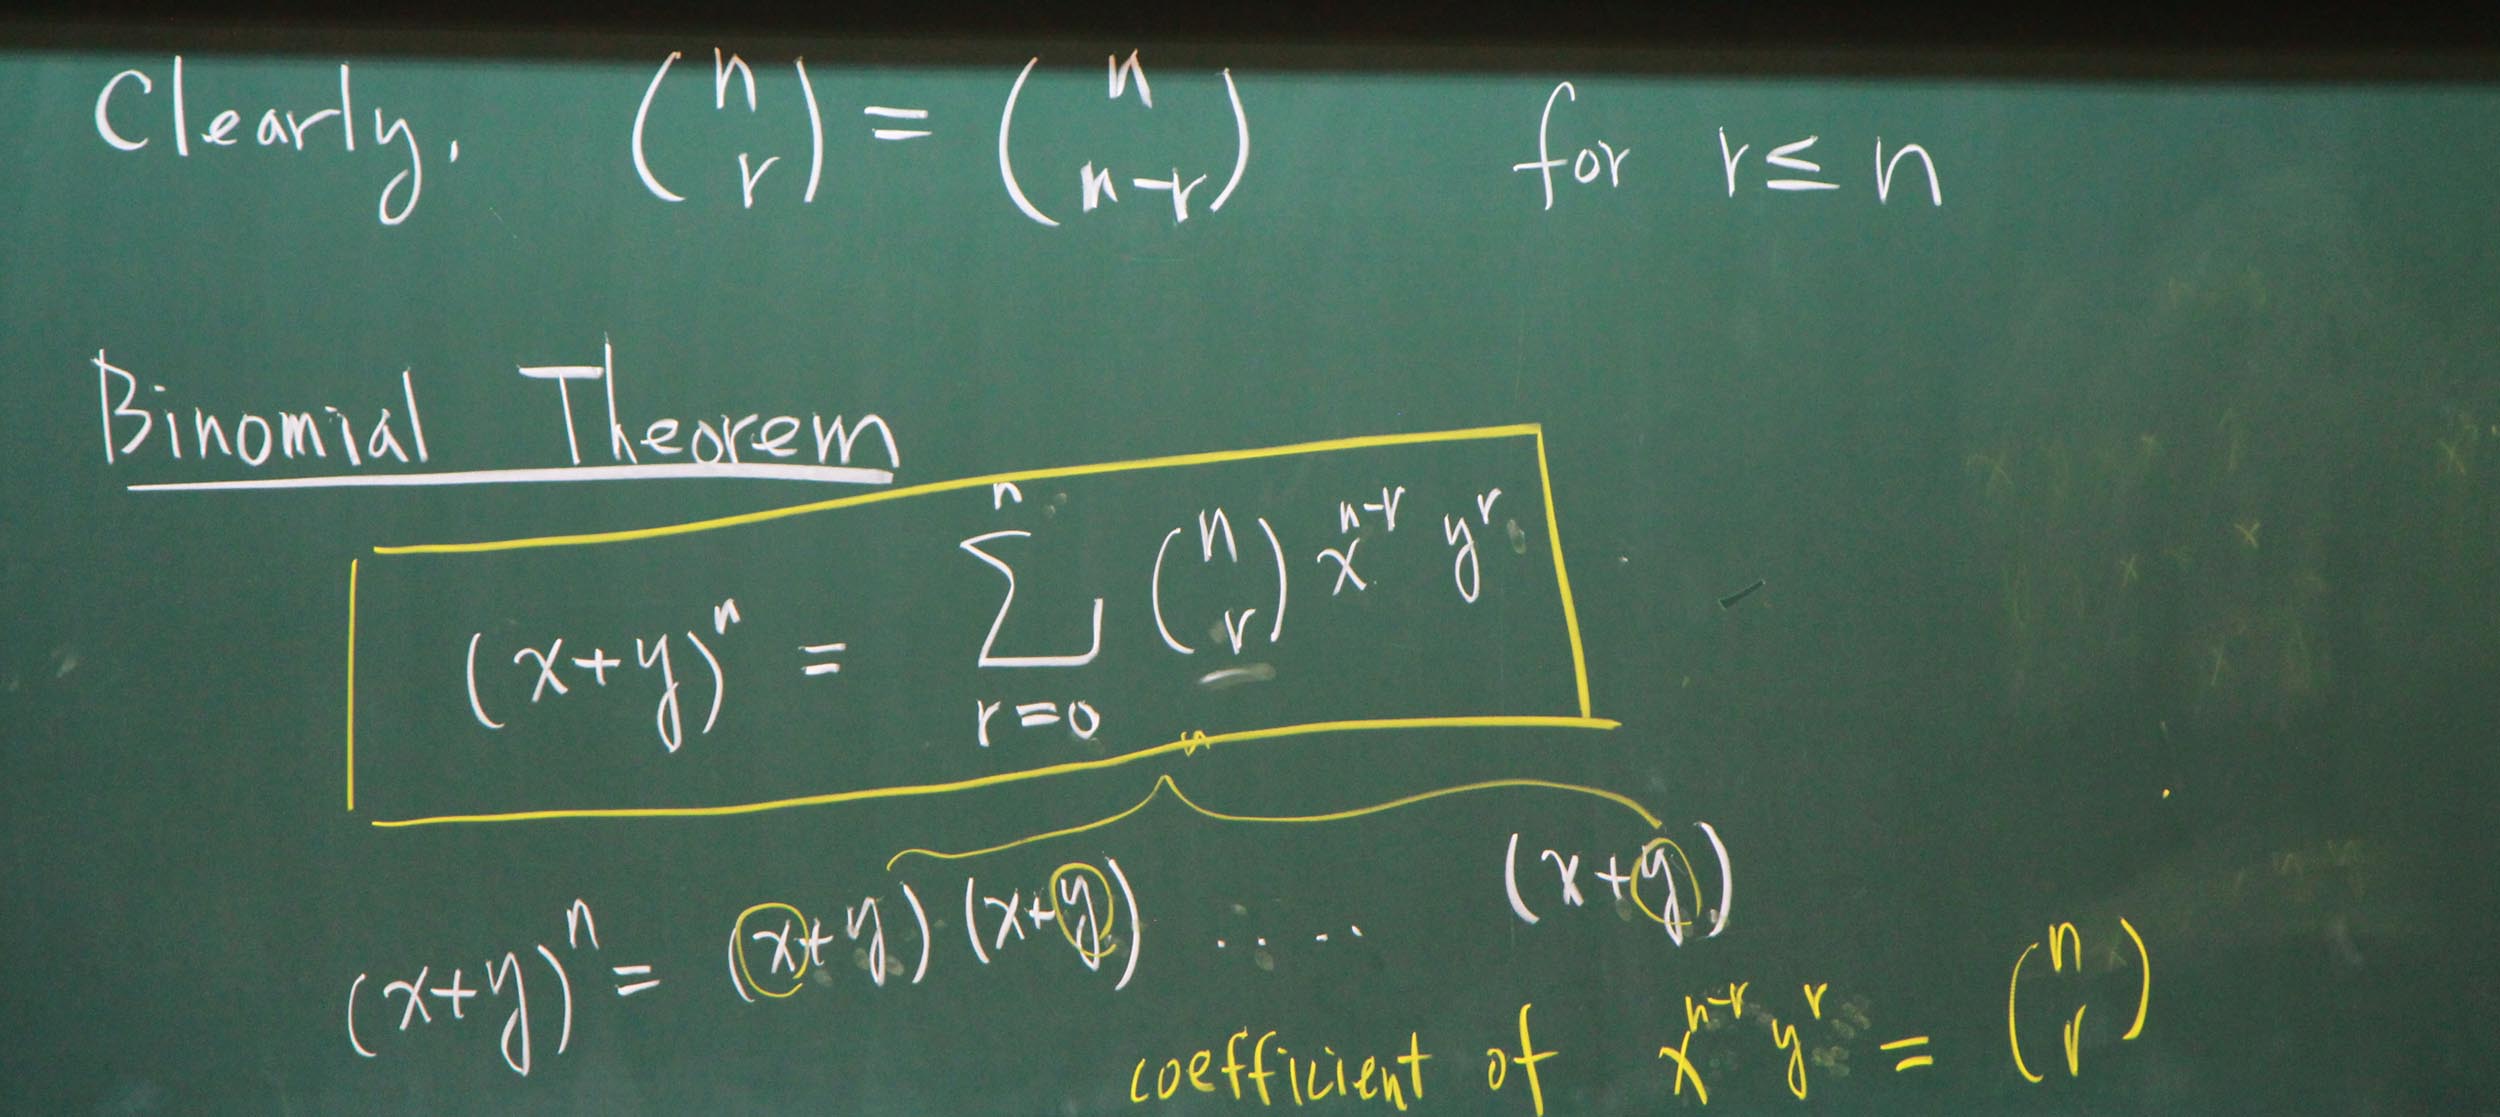 Clearly, (n r) = (n n-r) for r ≤ n
Binomial Theorem
(x+y)^n = ∑_{r=0}^{n} (n r) x^{n-r} y^r
n
(x+y)^n = (x+y)(x+y) ..... (x+y)
coefficient of x^{n-r} y^r = (n r)